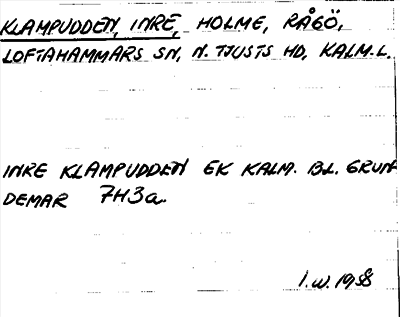 KLAMPUDDEN, INRE, HOLME, RÅGÖ,
LOFTAHAMMARS SN, N. TJUSTS HD, KALM.L.
INRE KLAMPUDDEN EK KALM. BL. GRUN
DEMAR 7H3a.
I.W. 1958